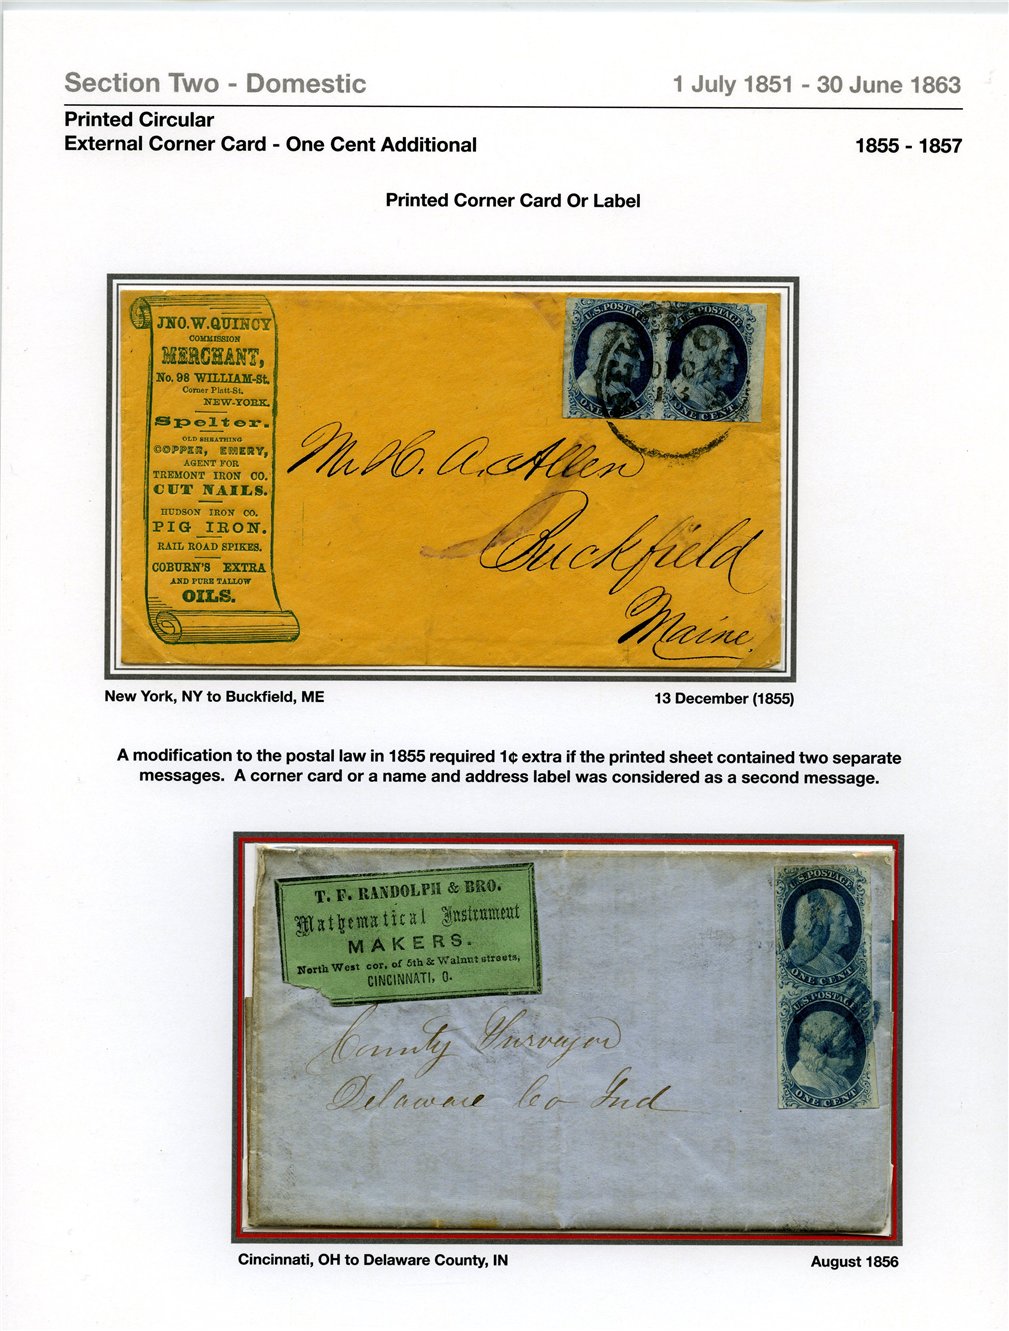 Section Two - Domestic
1 July 1851 - 30 June 1863
Printed Circular
External Corner Card - One Cent Additional
1855 - 1857
Printed Corner Card Or Label
JNO. W. QUINCY
COMMISSION
MERCHANT,
No. 98 WILLIAM-St.
Corner Platt-St.
NEW-YORK.
Spelter.
OLD SHEATHING
COPPER, EMERY,
AGENT FOR
TREMONT IRON CO.
CUT NAILS.
HUDSON IRON CO.
PIG IRON.
RAIL ROAD SPIKES.
COBURN'S EXTRA
AND PURE TALLOW
OILS.
U.S. POSTAGE
ONE CENT
U.S. POSTAGE
ONE CENT
Mr. H. A. Allen
Buckfield
Maine.
New York, NY to Buckfield, ME
13 December (1855)
A modification to the postal law in 1855 required 1¢ extra if the printed sheet contained two separate
messages. A corner card or a name and address label was considered as a second message.
T. F. RANDOLPH & BRO.
Mathematical Instrument
MAKERS.
North West cor, of 5th & Walnut streets,
CINCINNATI, O.
U.S. POSTAGE
ONE CENT
U.S. POSTAGE
ONE CENT
County Surveyor
Delaware Co Ind
Cincinnati, OH to Delaware County, IN
August 1856